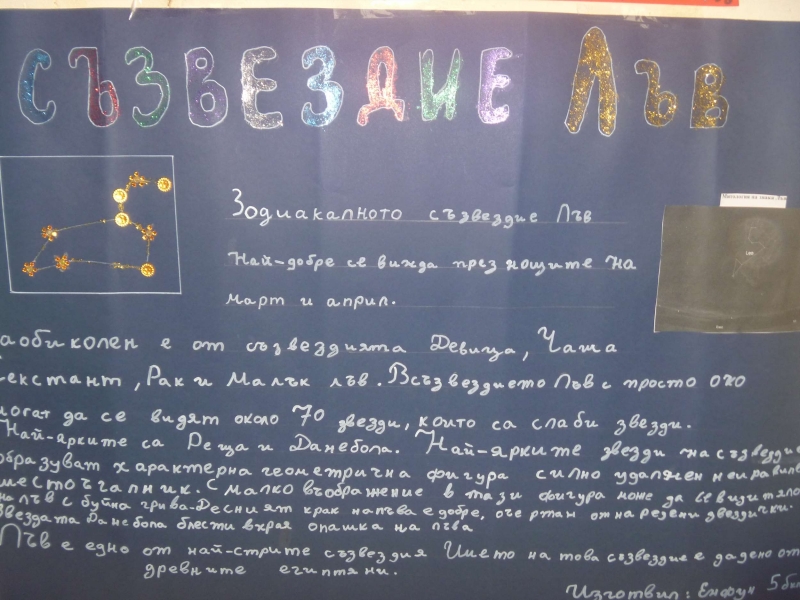 СЪЗВЕЗДИЕ ЛЪВ
Зодиакалното съзвездие Лъв
Най-добре се вижда през нощите на
март и април.
аобиколен е от съзвездията Девица, Чаша
екстант, Рак и Малък лъв. Всъзвездието Лъв с просто око
могат да се видят около 70 звезди, които са слаби звезди.
Най-ярките са Реща и Данебола. Най-ярките звезди на съзвездие
образуват характерна геометрична фигура силно удължен неправиле
шестоъгалник. С малко въображение в тази фигура може да се види тяло
на лъв с буйна грива. Десният крак на лъва е добре, оче ртан от на резени двездички.
Звездата Данебола блести вкрая опашка на лъва
Лъв е едно от най-стрите съзвездия Името на това съзвездие е дадено от
древните египтяни.
Изготвил: Енфун 5